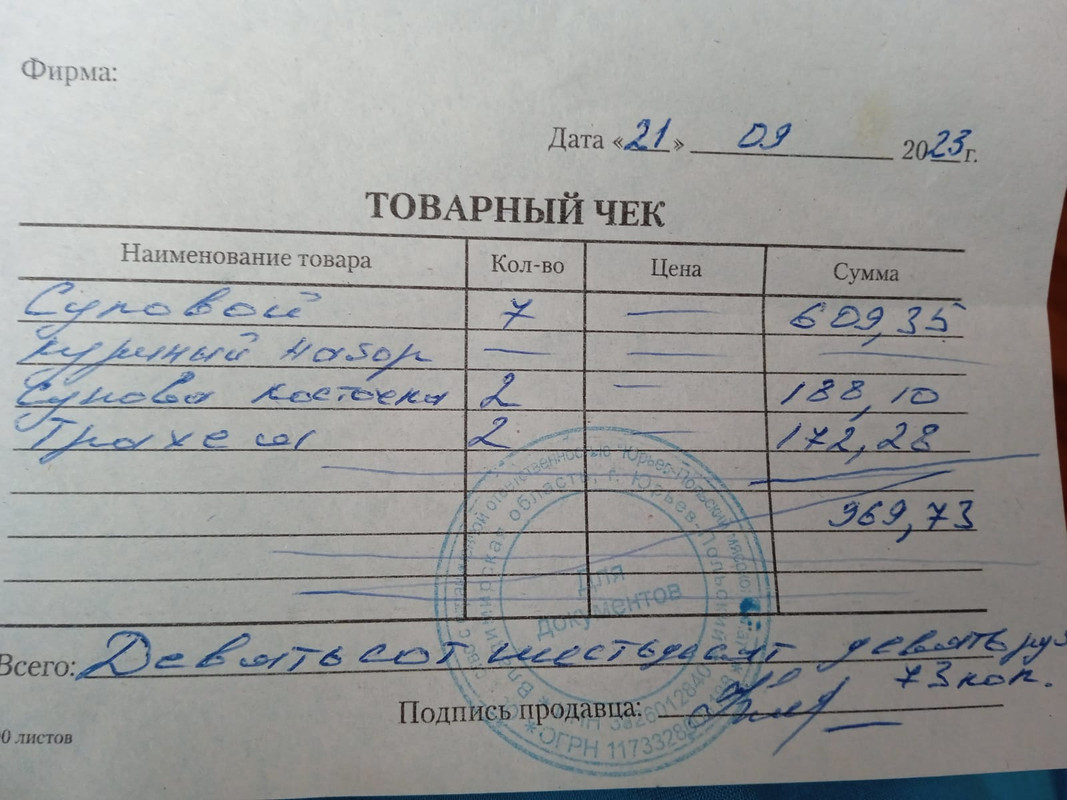 Фирма:
Дата «21» 09 2023 г.
ТОВАРНЫЙ ЧЕК
Наименование товара Кол-во Цена Сумма
Суповой 7 — 609,35
куриный набор — — —
Супова косточка 2 — 188,10
Трахея 2 — 172,28
969,73
Всего: Девятьсот шестьдесят девять руб
73 коп.
Подпись продавца:
0 листов
Для
документов
ответственностью "Юрьев-Польский
Владимирская область, г. Юрьев-Польский